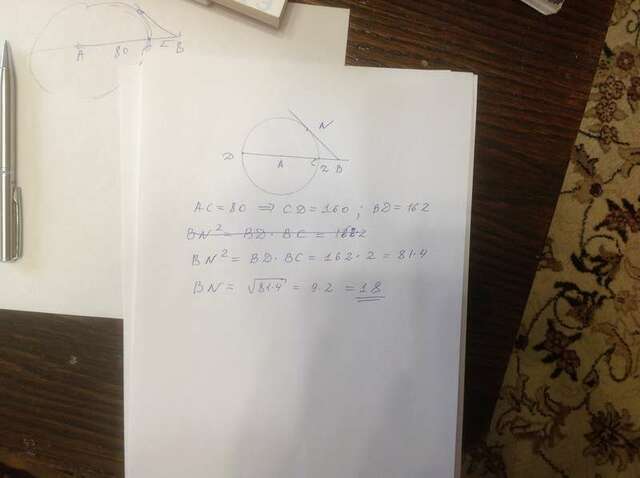 A 80 C 2 B
N
D A C 2 B
AC = 80 ⇒ CD = 160 ; BD = 162
BN² = BD · BC = 162·2
BN² = BD · BC = 162 · 2 = 81·4
BN = √81·4 = 9·2 = 18